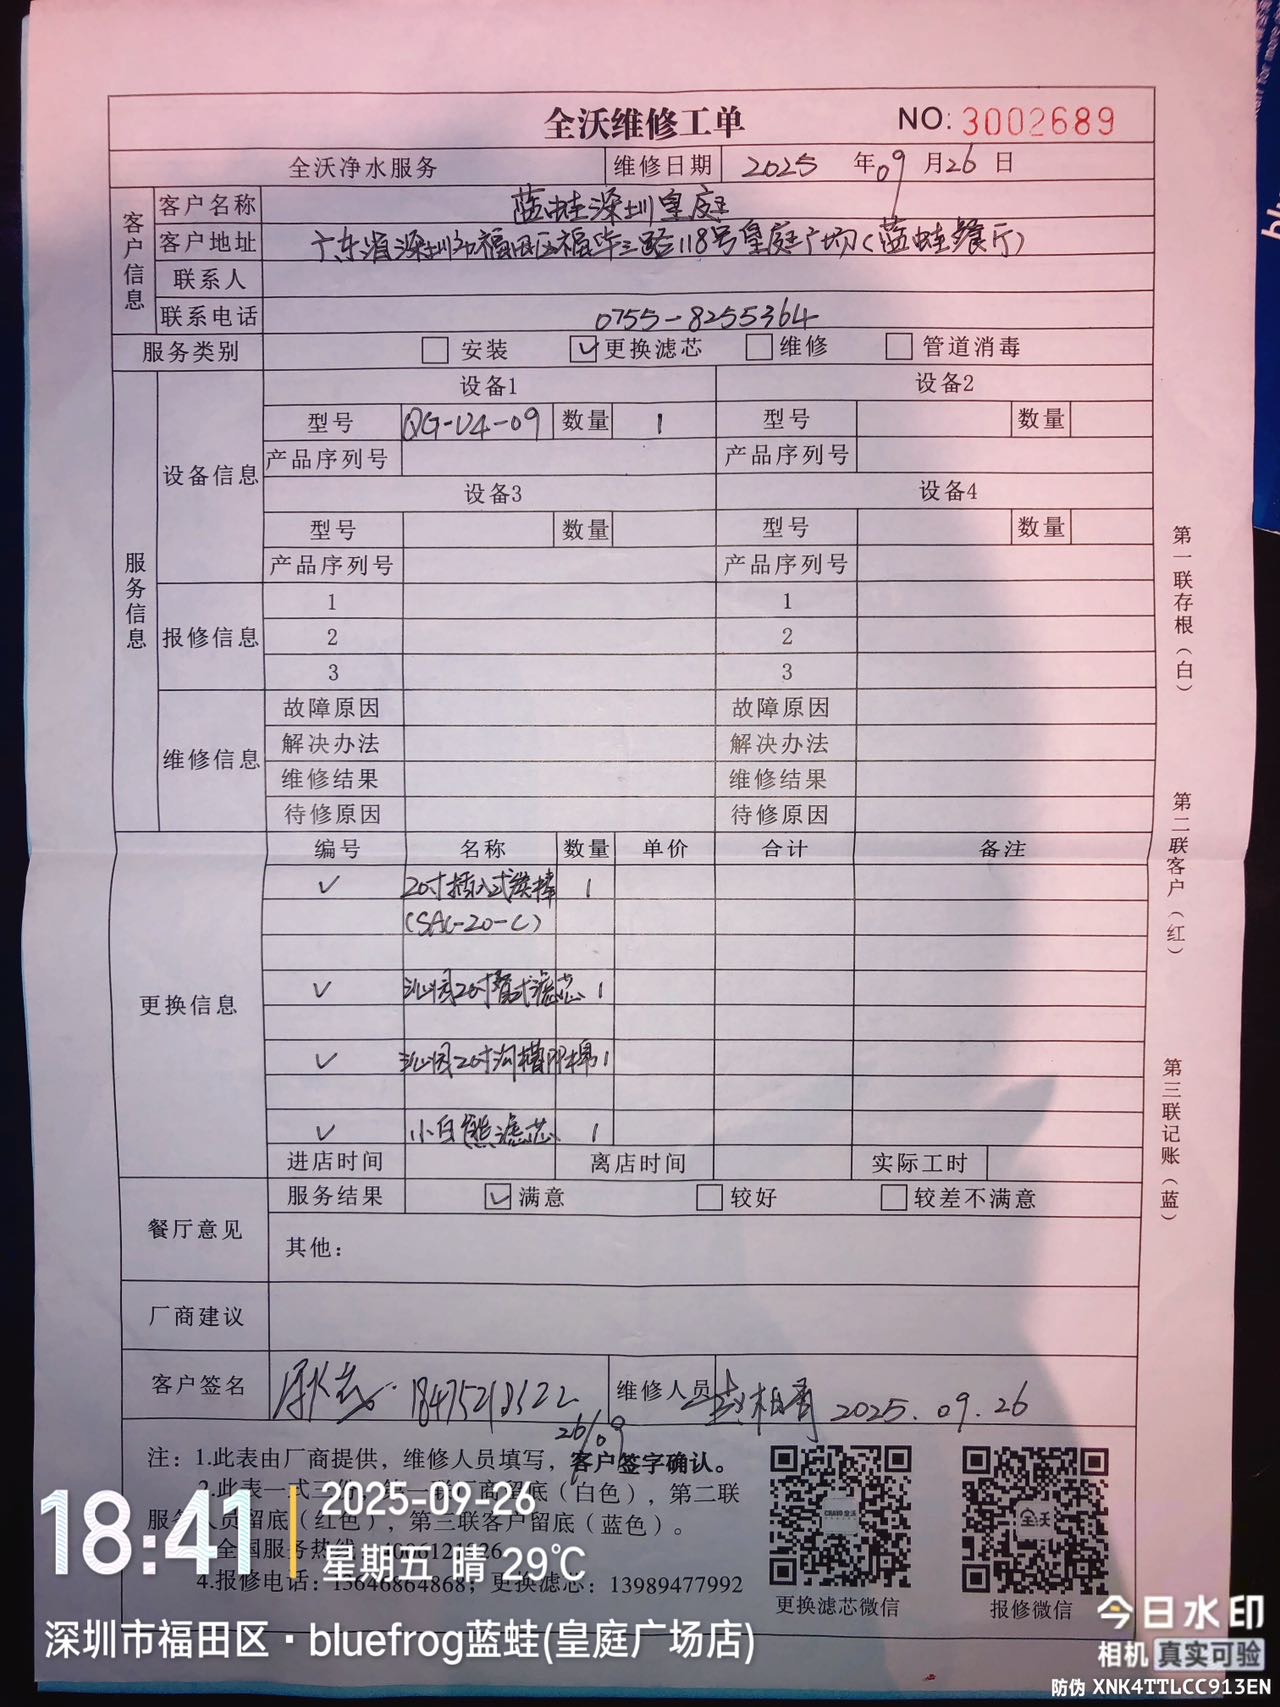 全沃维修工单 NO: 3002689
全沃净水服务 维修日期 2025 年 09 月 26 日
客户信息
客户名称 蓝蛙深圳皇庭
客户地址 广东省深圳市福田区福华三路118号皇庭广场(蓝蛙餐厅)
联系人
联系电话 0755-8255364
服务类别 安装 ✓ 更换滤芯 维修 管道消毒
服务信息
设备信息
设备1 设备2
型号 QG-U4-09 数量 1 型号 数量
产品序列号 产品序列号
设备3 设备4
型号 数量 型号 数量
产品序列号 产品序列号
报修信息
1 1
2 2
3 3
维修信息
故障原因 故障原因
解决办法 解决办法
维修结果 维修结果
待修原因 待修原因
更换信息
编号 名称 数量 单价 合计 备注
✓ 20寸插入式炭棒 1
(SAC-20-C)
✓ 沁园20寸 式滤芯 1
✓ 沁园20寸沟槽PP棉 1
✓ 小白熊滤芯 1
进店时间 离店时间 实际工时
餐厅意见
服务结果 ✓ 满意 较好 较差不满意
其他：
厂商建议
客户签名 维修人员 2025.09.26
26/09
注：1.此表由厂商提供，维修人员填写，客户签字确认。
2.此表一式三份，第一联厂商留底（白色），第二联
服务人员留底（红色），第三联客户留底（蓝色）。
全国服务热线：
4.报修电话：13646864868；更换滤芯：13989477992
更换滤芯微信 报修微信
CHANO 全沃
全沃
第一联存根（白）
第二联客户（红）
第三联记账（蓝）
18:41
2025-09-26
星期五 晴 29℃
深圳市福田区·bluefrog蓝蛙(皇庭广场店)
今日水印
相机 真实可验
防伪 XNK4TTLCC913EN